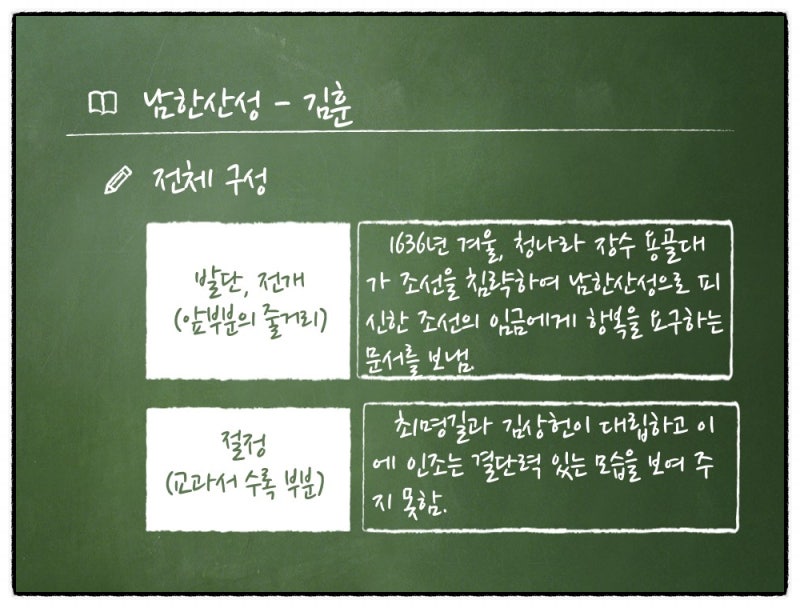 남한산성 - 김훈
전체 구성
발단, 전개
(앞부분의 줄거리)
1636년 겨울, 청나라 장수 용골대
가 조선을 침략하여 남한산성으로 피
신한 조선의 임금에게 항복을 요구하는
문서를 보냄.
절정
(교과서 수록 부분)
최명길과 김상헌이 대립하고 이
에 인조는 결단력 있는 모습을 보여 주
지 못함.